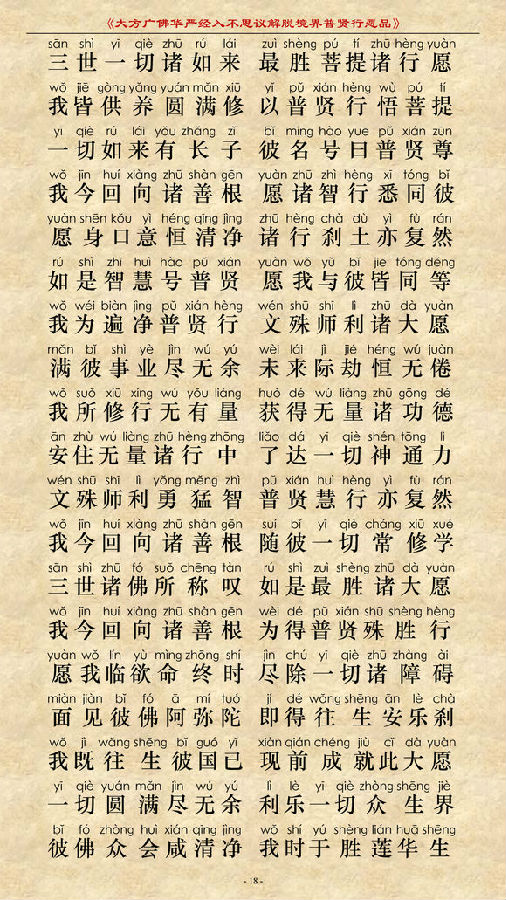 《大方广佛华严经入不思议解脱境界普贤行愿品》
sān shì yī qiè zhū rú lái zuì shèng pú tí zhū hèng yuàn
三世一切诸如来 最胜菩提诸行愿
wǒ jiē gòng yǎng yuán mǎn xiū yǐ pǔ xián hèng wù pú tí
我皆供养圆满修 以普贤行悟菩提
yī qiè rú lái yǒu zhǎng zǐ bǐ míng hào yuē pǔ xián zūn
一切如来有长子 彼名号曰普贤尊
wǒ jīn huí xiàng zhū shàn gēn yuàn zhū zhì hèng xī tóng bǐ
我今回向诸善根 愿诸智行悉同彼
yuàn shēn kǒu yì héng qīng jìng zhū hèng chà dù yì fù rán
愿身口意恒清净 诸行刹土亦复然
rú shì zhì huì hào pǔ xián yuàn wǒ yǔ bǐ jiē tóng děng
如是智慧号普贤 愿我与彼皆同等
wǒ wéi biàn jìng pǔ xián hèng wén shū shī lì zhū dà yuàn
我为遍净普贤行 文殊师利诸大愿
mǎn bǐ shì yè jìn wú yú wèi lái jì jié héng wú juàn
满彼事业尽无余 未来际劫恒无倦
wǒ suǒ xiū xíng wú yǒu liàng huò dé wú liàng zhū gōng dé
我所修行无有量 获得无量诸功德
ān zhù wú liàng zhū hèng zhōng liǎo dá yī qiè shén tōng lì
安住无量诸行中 了达一切神通力
wén shū shī lì yǒng měng zhì pǔ xián huì hèng yì fù rán
文殊师利勇猛智 普贤慧行亦复然
wǒ jīn huí xiàng zhū shàn gēn suí bǐ yī qiè cháng xiū xué
我今回向诸善根 随彼一切常修学
sān shì zhū fó suǒ chēng tàn rú shì zuì shèng zhū dà yuàn
三世诸佛所称叹 如是最胜诸大愿
wǒ jīn huí xiàng zhū shàn gēn wèi dé pǔ xián shū shèng hèng
我今回向诸善根 为得普贤殊胜行
yuàn wǒ lín yù mìng zhōng shí jìn chú yī qiè zhū zhàng ài
愿我临欲命终时 尽除一切诸障碍
miàn jiàn bǐ fó ā mí tuó jí dé wǎng shēng ān lè chà
面见彼佛阿弥陀 即得往生安乐刹
wǒ jì wǎng shēng bǐ guó yǐ xiàn qián chéng jiù cǐ dà yuàn
我既往生彼国已 现前成就此大愿
yī qiè yuán mǎn jìn wú yú lì lè yī qiè zhòng shēng jiè
一切圆满尽无余 利乐一切众生界
bǐ fó zhòng huì xián qīng jìng wǒ shí yú shèng lián huā shēng
彼佛众会咸清净 我时于胜莲华生
- 18 -